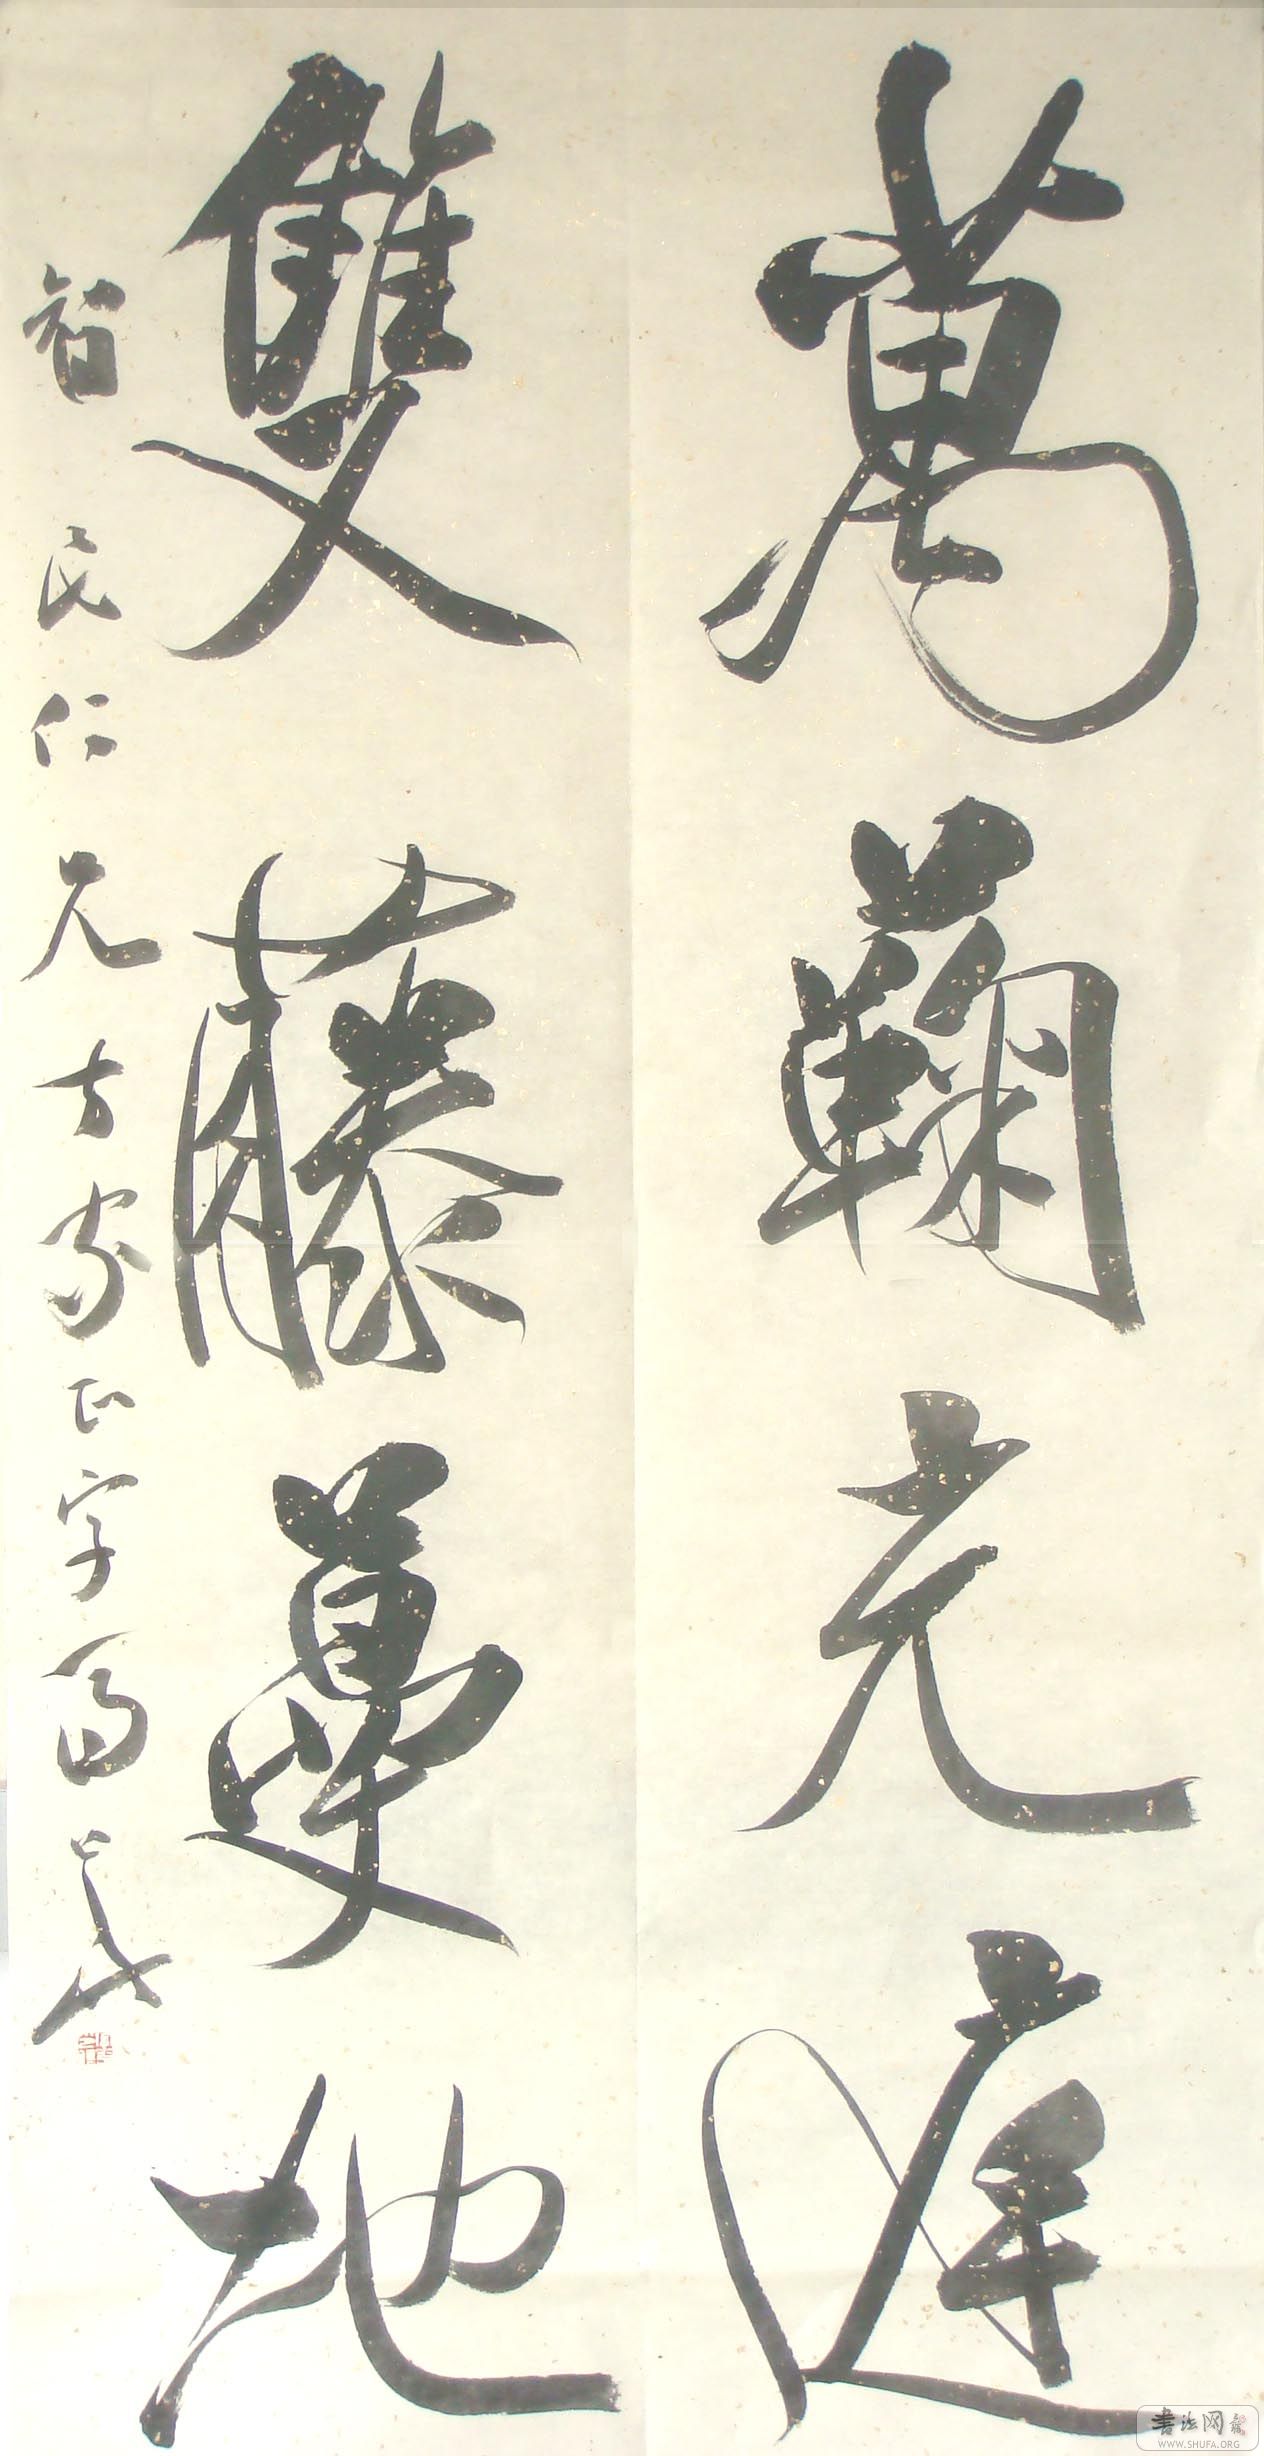 萬蘜光庭
雙藤蔓地
智民仁兄方家正字
書法网
WWW.SHUFA.ORG